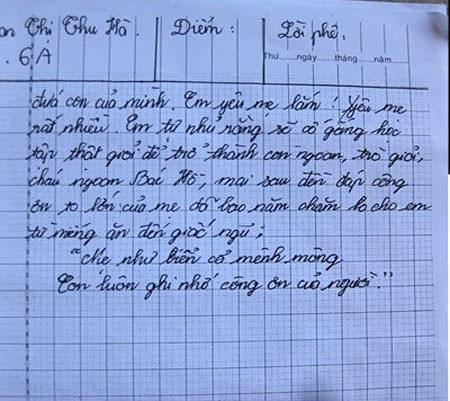 an Thị Thu Hà. Điểm: Lời phê.
. 6A Thứ.......ngày.......tháng.....năm........
đứa con của mình. Em yêu mẹ lắm! Yêu mẹ
rất nhiều. Em tự nhủ rằng sẽ cố gắng học
tập thật giỏi để trở thành con ngoan, trò giỏi,
cháu ngoan Bác Hồ, mai sau đền đáp công
ơn to lớn của mẹ đã bao năm chăm lo cho em
từ miếng ăn đến giấc ngủ;
"Mẹ như biển cả mênh mông
Con luôn ghi nhớ công ơn của người."